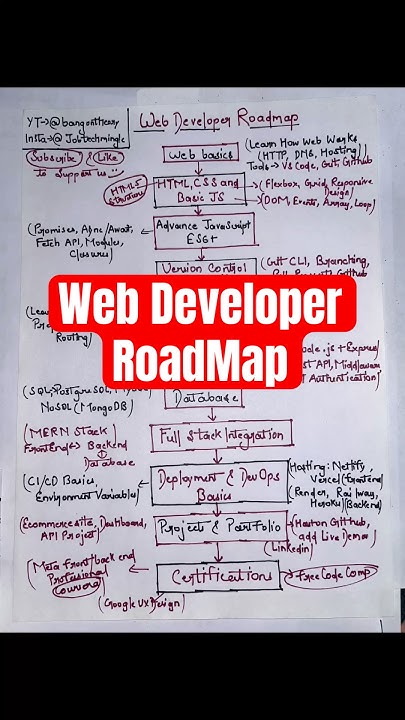 YT→@bangontheory
Insta→@Jobtechmingle
Subscribe & Like
to support us !!
Web Developer Roadmap
Web basics
(Learn How Web Works
(HTTP, DNS, Hosting)
Tools → VS Code, Git, Github
HTML5
HTML, CSS and
Basic JS
(Flexbox, Grid, Responsive
Design)
(DOM, Events, Array, Loop)
(Promises, Async/Await,
Fetch API, Modules,
Closures)
Advance JavaScript
ES6+
Version Control
(Git CLI, Branching,
Web Developer
RoadMap
Routing)
.js + Express
API, Middleware
Authentication)
(SQL, PostgreSQL, MySQL
NoSQL (MongoDB)
Database
(MERN Stack)
FrontEnd ↔ Backend
↕
Database
Full Stack Integration
(CI/CD Basics,
Environment Variables)
Deployment & DevOps
Basics
Hosting: Netlify,
Vercel (frontend)
(Render, Railway,
Heroku) (Backend)
(Ecommerce site, Dashboard,
API Project)
Project & Portfolio
Host on Github,
add Live Demos
(Linkedin)
(Meta Front/back end
Professional
Coursera
Certifications
FreeCodeCamp
(Google UX Design)